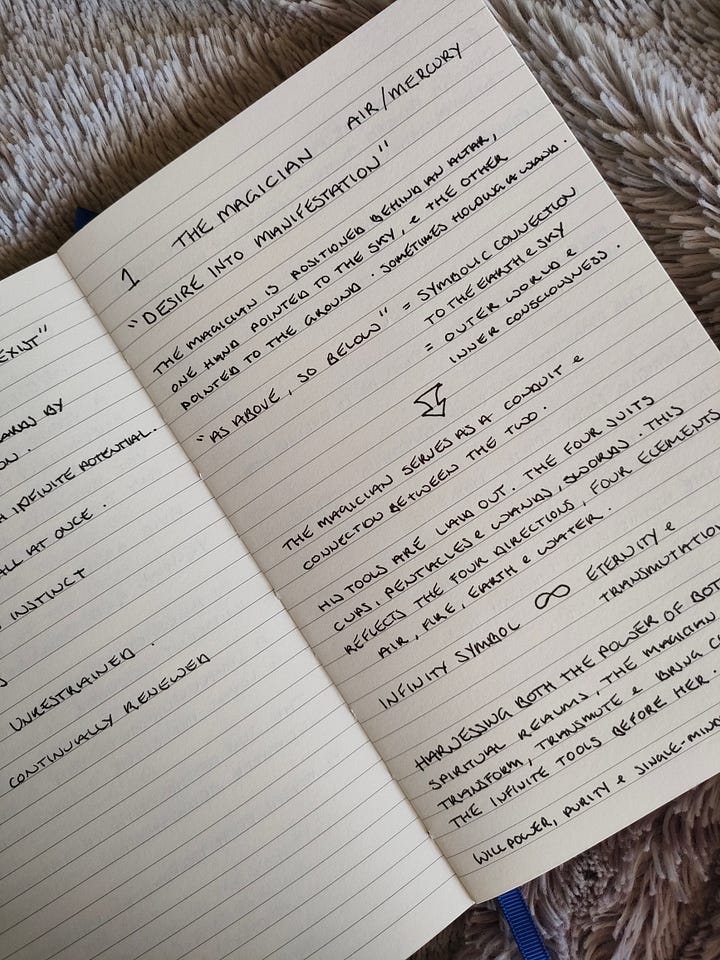 EXIST"
BY
INFINITE POTENTIAL.
ALL AT ONCE.
INSTINCT
UNRESTRAINED.
CONTINUALLY RENEWED
1 THE MAGICIAN AIR/MERCURY
"DESIRE INTO MANIFESTATION"
THE MAGICIAN IS POSITIONED BEHIND AN ALTAR,
ONE HAND POINTED TO THE SKY, & THE OTHER
POINTED TO THE GROUND. SOMETIMES HOLDING A WAND.
"AS ABOVE, SO BELOW" = SYMBOLIC CONNECTION
TO THE EARTH & SKY
= OUTER WORLD &
INNER CONSCIOUSNESS.
THE MAGICIAN SERVES AS A CONDUIT &
CONNECTION BETWEEN THE TWO.
HIS TOOLS ARE LAID OUT. THE FOUR SUITS
CUPS, PENTACLES & WANDS, SWORDS. THIS
REFLECTS THE FOUR DIRECTIONS, FOUR ELEMENTS
AIR, FIRE, EARTH & WATER.
INFINITY SYMBOL ∞ ETERNITY &
TRANSMUTATION
HARNESSING BOTH THE POWER OF
SPIRITUAL REALMS, THE MAGICIAN
TRANSFORM, TRANSMUTE & BRING
THE INFINITE TOOLS BEFORE HER.
WILLPOWER, PURITY &